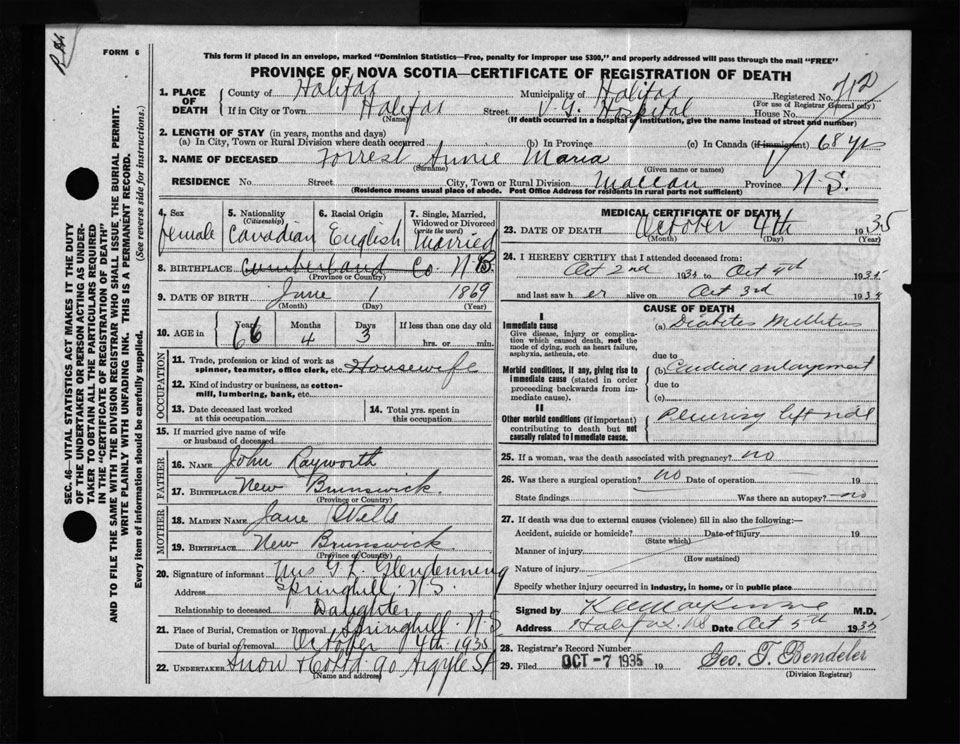 FORM 6
This form if placed in an envelope, marked "Dominion Statistics—Free, penalty for improper use $300," and properly addressed will pass through the mail "FREE"
PROVINCE OF NOVA SCOTIA—CERTIFICATE OF REGISTRATION OF DEATH
SEC. 46—VITAL STATISTICS ACT MAKES IT THE DUTY
OF THE UNDERTAKER OR PERSON ACTING AS UNDER-
TAKER TO OBTAIN ALL THE PARTICULARS REQUIRED
IN THE "CERTIFICATE OF REGISTRATION OF DEATH"
AND TO FILE THE SAME WITH THE DIVISION REGISTRAR WHO SHALL ISSUE THE BURIAL PERMIT.
WRITE PLAINLY WITH UNFADING INK. THIS IS A PERMANENT RECORD.
Every item of information should be carefully supplied. (See reverse side for instructions.)
1. PLACE OF DEATH County of Halifax Municipality of Halifax Registered No. 712
(For use of Registrar General only)
If in City or Town Halifax Street V.G. Hospital House No.
(Name) (If death occurred in a hospital or institution, give the name instead of street and number)
2. LENGTH OF STAY (in years, months and days)
(a) In City, Town or Rural Division where death occurred (b) In Province (c) In Canada (if immigrant) 68 yrs
3. NAME OF DECEASED Forrest Annie Maria
(Surname) (Given name or names)
RESIDENCE No. Street City, Town or Rural Division Maccan Province N.S.
(Residence means usual place of abode. Post Office Address for residents in rural parts not sufficient)
4. Sex female
5. Nationality (Citizenship) Canadian
6. Racial Origin English
7. Single, Married, Widowed or Divorced (write the word) Married
8. BIRTHPLACE Cumberland Co. N.B.
(Province or Country)
9. DATE OF BIRTH June 1 1869
(Month) (Day) (Year)
10. AGE in Years 66 Months 4 Days 3 If less than one day old
hrs. or min.
OCCUPATION
11. Trade, profession or kind of work as spinner, teamster, office clerk, etc. Housewife
12. Kind of industry or business, as cotton-mill, lumbering, bank, etc.
13. Date deceased last worked at this occupation
14. Total yrs. spent in this occupation
15. If married give name of wife or husband of deceased
FATHER
16. NAME John Rayworth
17. BIRTHPLACE New Brunswick
(Province or Country)
MOTHER
18. MAIDEN NAME Jane Wells
19. BIRTHPLACE New Brunswick
(Province or Country)
20. Signature of informant Mrs G. L. Glendenning
Address Springhill N.S.
Relationship to deceased Daughter
21. Place of Burial, Cremation or Removal Springhill N.S.
Date of burial or removal October 4th 1935
22. UNDERTAKER Snow & Co Ltd 90 Argyle St
(Name and address)
MEDICAL CERTIFICATE OF DEATH
23. DATE OF DEATH October 4th 1935
(Month) (Day) (Year)
24. I HEREBY CERTIFY that I attended deceased from:
Oct 2nd 1935 to Oct 4th 1935
and last saw her alive on Oct 3rd 1935
CAUSE OF DEATH
I
Immediate cause
Give disease, injury or complication which caused death, not the mode of dying, such as heart failure, asphyxia, asthenia, etc
(a) Diabetes Mellitus
due to
Morbid conditions, if any, giving rise to immediate cause (stated in order proceeding backwards from immediate cause).
(b) Cardiac enlargement
due to
(c)
II
Other morbid conditions (if important) contributing to death but not causally related to immediate cause.
Pleurisy left side
25. If a woman, was the death associated with pregnancy? no
26. Was there a surgical operation? no Date of operation 19
State findings Was there an autopsy? no
27. If death was due to external causes (violence) fill in also the following:—
Accident, suicide or homicide? Date of injury 19
(State which)
Manner of injury
(How sustained)
Nature of injury
Specify whether injury occurred in industry, in home, or in public place
Signed by M.D.
Address Halifax NS Date Oct 5th 1935
28. Registrar's Record Number
29. Filed OCT -7 1935 19 Geo. T. Bendeler
(Division Registrar)